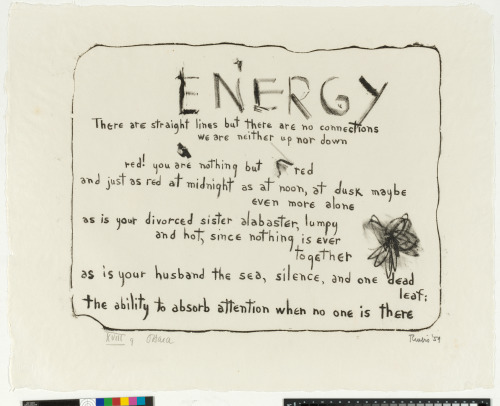 ENERGY
There are straight lines but there are no connections
we are neither up nor down
red! you are nothing but red
and just as red at midnight as at noon, at dusk maybe
even more alone
as is your divorced sister alabaster, lumpy
and hot, since nothing is ever
together
as is your husband the sea, silence, and one dead
leaf:
the ability to absorb attention when no one is there
XVIII O'Hara '59